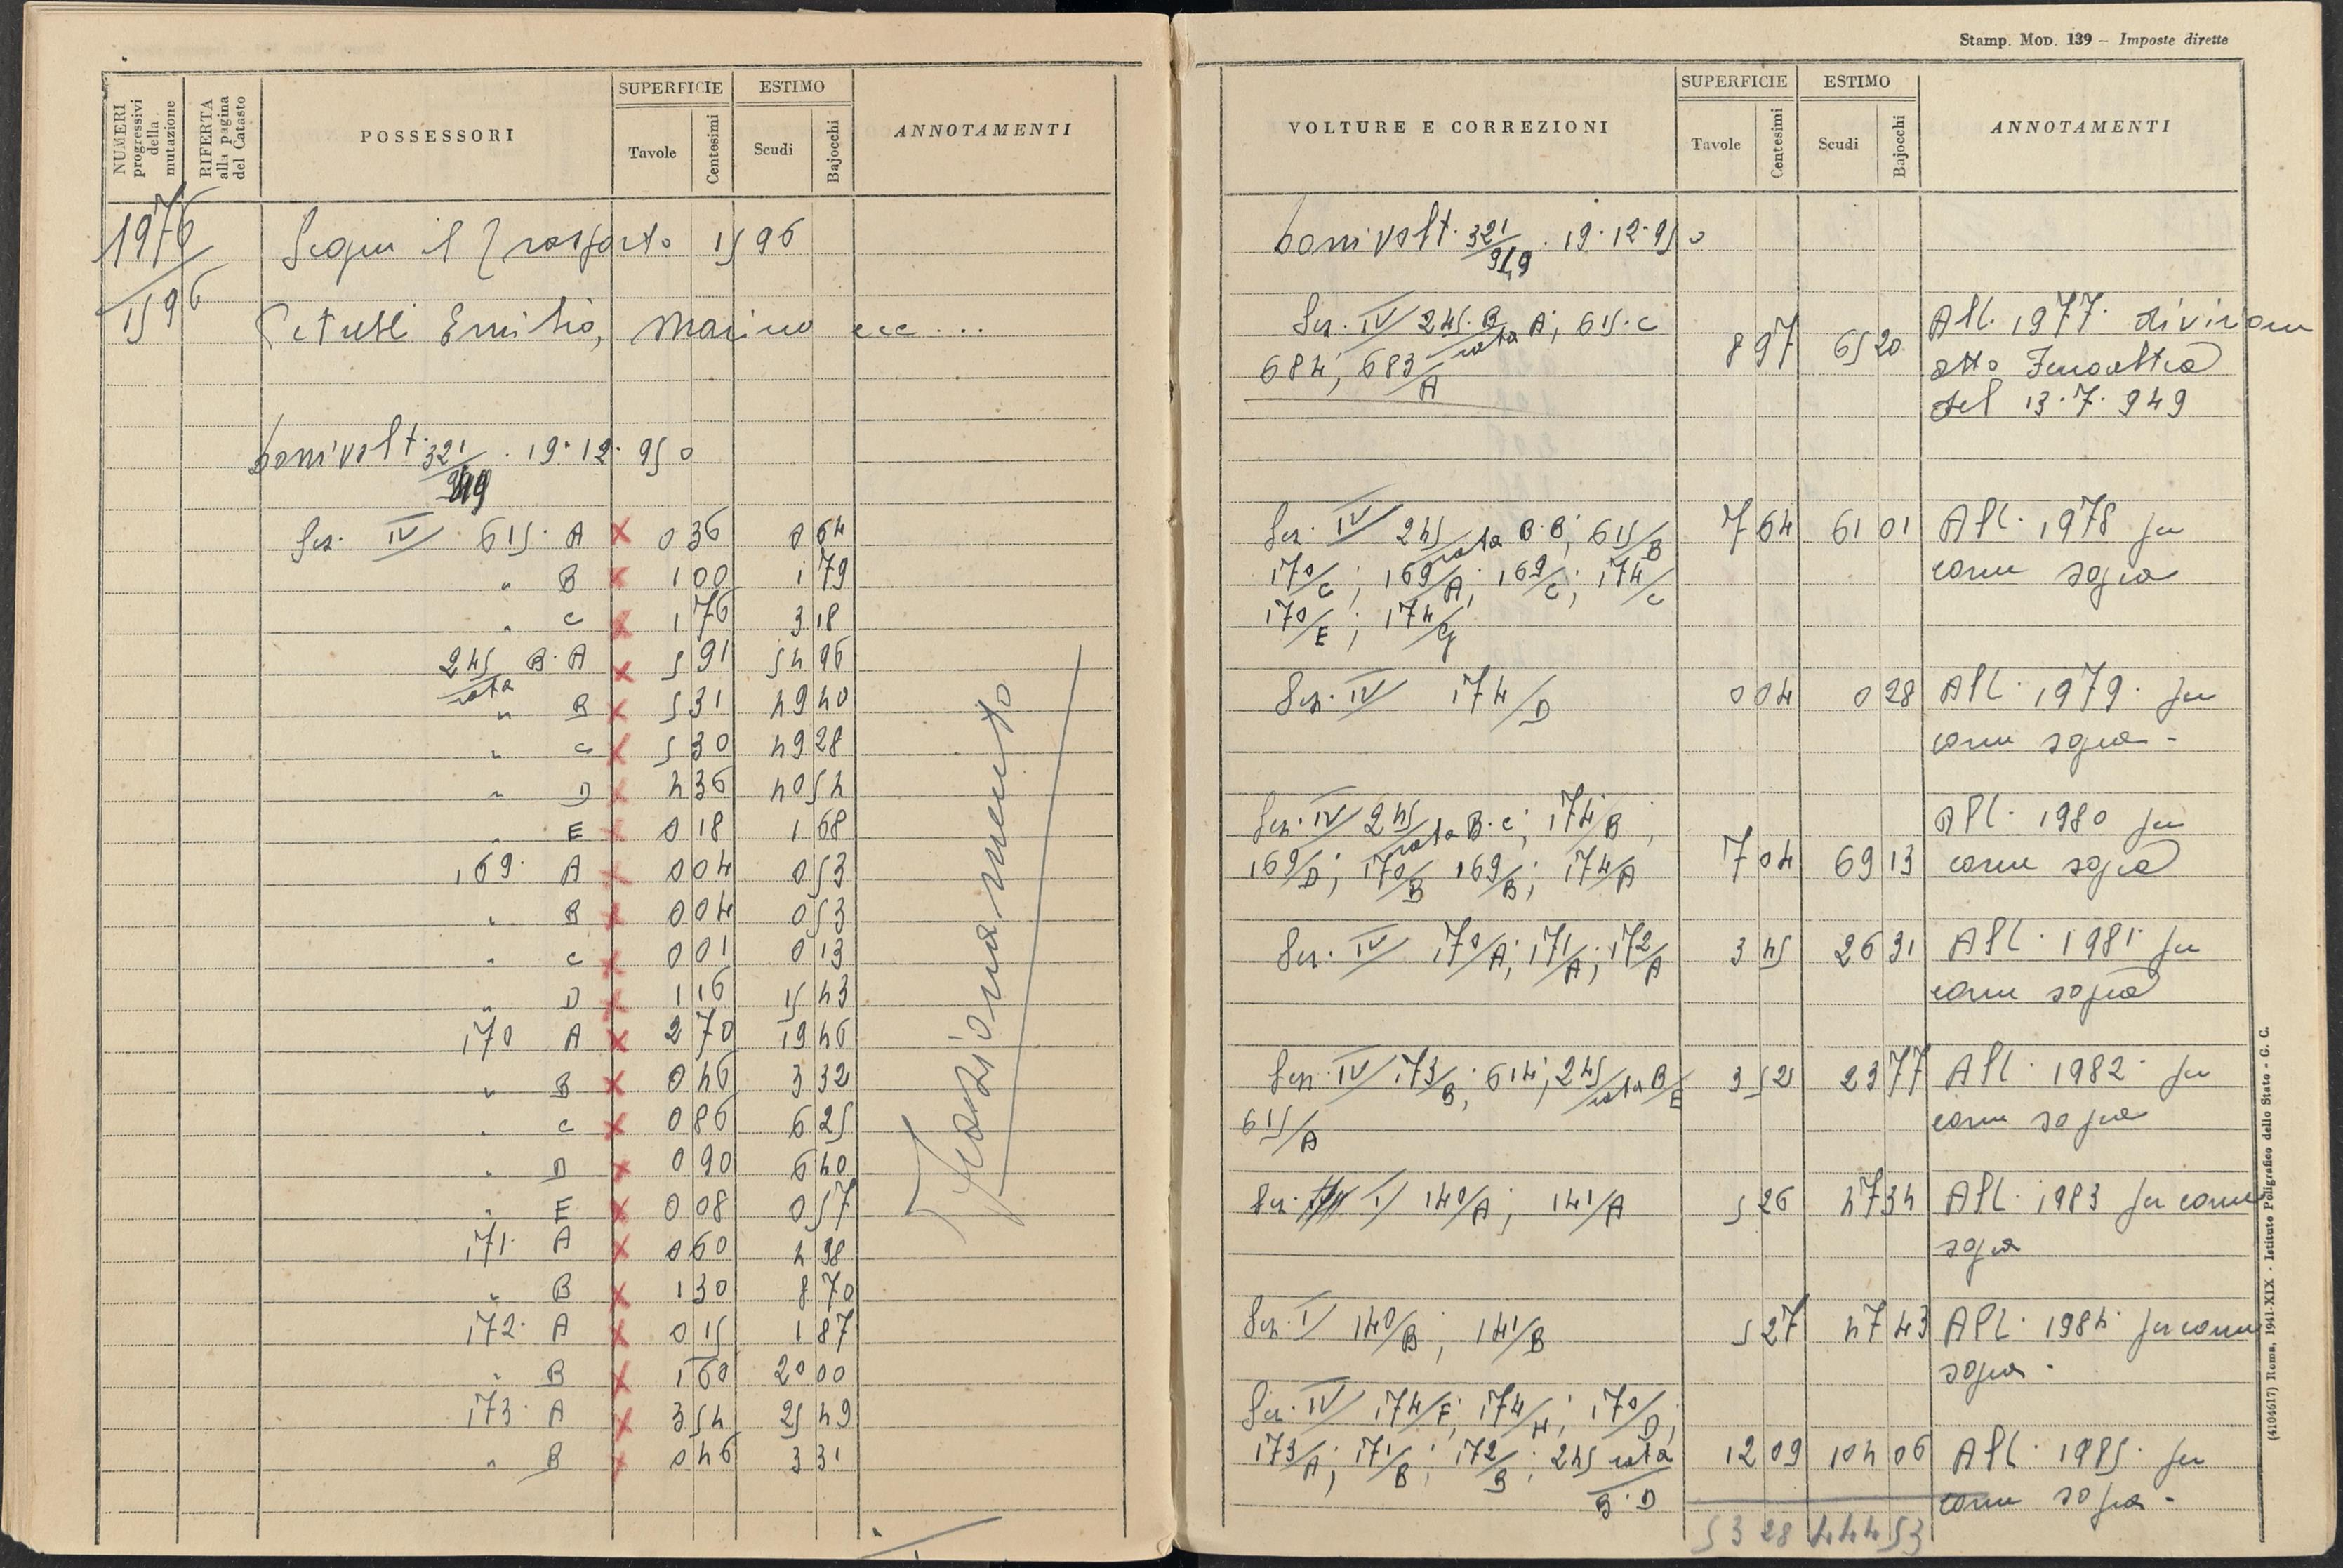 Stamp. Mod. 139 – Imposte dirette
NUMERI progressivi della mutazione
RIFERTA alla pagina del Catasto
POSSESSORI
SUPERFICIE
Tavole
Centesimi
ESTIMO
Scudi
Bajocchi
ANNOTAMENTI
1976
1596
Segue il Trasporto 1596
Petulli Emilio, Marino ecc...
321/949 . 19.12.950
Sez. IV 615. A × 0 36 0 64
" B × 1 00 1 79
" C × 1 76 3 18
245 rata B. A × 5 91 54 96
" B × 5 31 49 40
" C × 5 30 49 28
" D × 4 36 40 54
" E × 0 18 1 68
169. A × 0 04 0 53
" B × 0 04 0 53
" C × 0 01 0 13
" D × 1 16 15 43
170 A × 2 70 19 46
" B × 0 46 3 32
" C × 0 86 6 25
" D × 0 90 6 40
" E × 0 08 0 57
171. A × 0 60 4 98
" B × 1 30 8 70
172. A × 0 15 1 87
" B × 1 60 20 00
173. A × 3 54 25 49
" B × 0 46 3 31
Frazionamento
VOLTURE E CORREZIONI
SUPERFICIE
Tavole
Centesimi
ESTIMO
Scudi
Bajocchi
ANNOTAMENTI
321/949 . 19.12.950
Sez. IV 245. B rata A; 615. C
684; 683/A
8 97 65 20
All. 1977. divisione
atto
del 13.7.949
Sez. IV 245 rata B.B; 615/B
170/C; 169/A; 169/C; 174/C
170/E; 174/G
7 64 61 01
All. 1978 per
come sopra
Sez. IV 174/D 0 04 0 28 All. 1979. per
come sopra -
Sez. IV 245 rata B.C; 174/B;
169/D; 170/B 169/B; 174/A
7 04 69 13
All. 1980 per
come sopra
Sez. IV 170/A; 171/A; 172/A 3 45 26 31 All. 1981. per
come sopra
Sez. IV 173/B; 614; 245 rata B/E
615/A
3 52 23 77
All. 1982. per
come sopra
Sez. I 140/A; 141/A 5 26 47 34 All. 1983 per come
sopra
Sez. I 140/B; 141/B 5 27 47 43 All. 1984. per come
sopra.
Sez. IV 174/F; 174/H; 170/D;
173/A; 171/B; 172/B; 245 rata
B. D
12 09 104 06
All. 1985. per
come sopra -
53 28 444 53
(4104617) Roma, 1941-XIX - Istituto Poligrafico dello Stato - G. C.